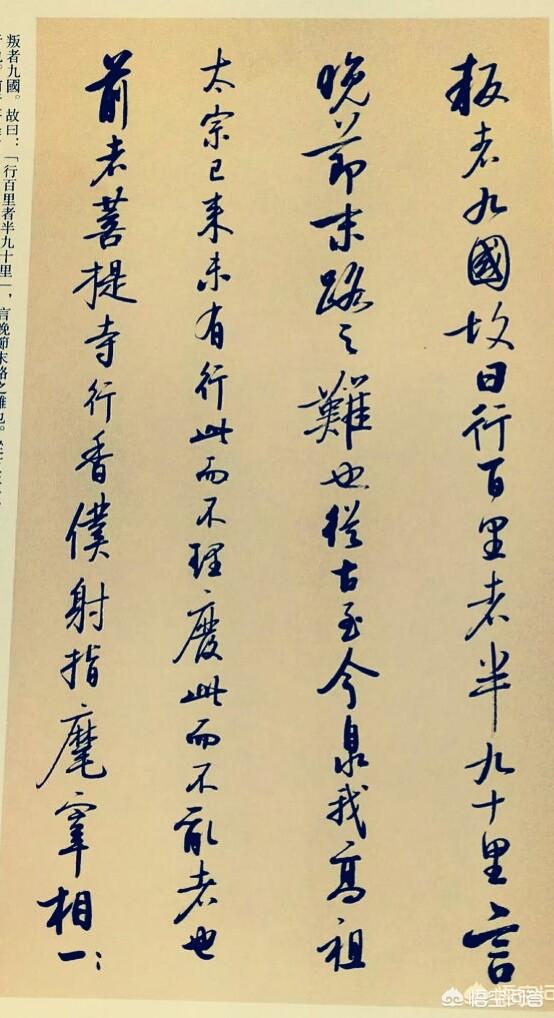 叛者九國故曰行百里者半九十里言
晚節末路之難也從古至今泉我高祖
太宗已来未有行此而不理廢此而不亂者也
前者菩提寺行香僕射指麾宰相一:
叛者九國。故曰:「行百里者半九十里」,言晚節末路之難也。
悟空问答